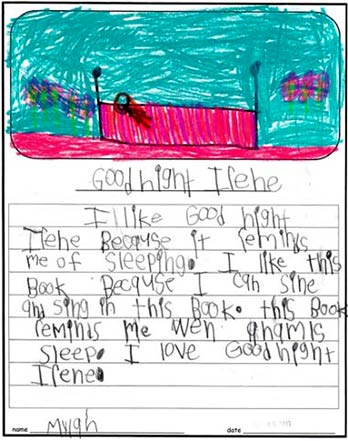 Good night Irene
I like Good night
Irene Because it reminds
me of sleeping. I like this
Book Because I can sine
and sing in this Book. this Book
reminds me wen
sleep. I love Good night
Irene.
name
date